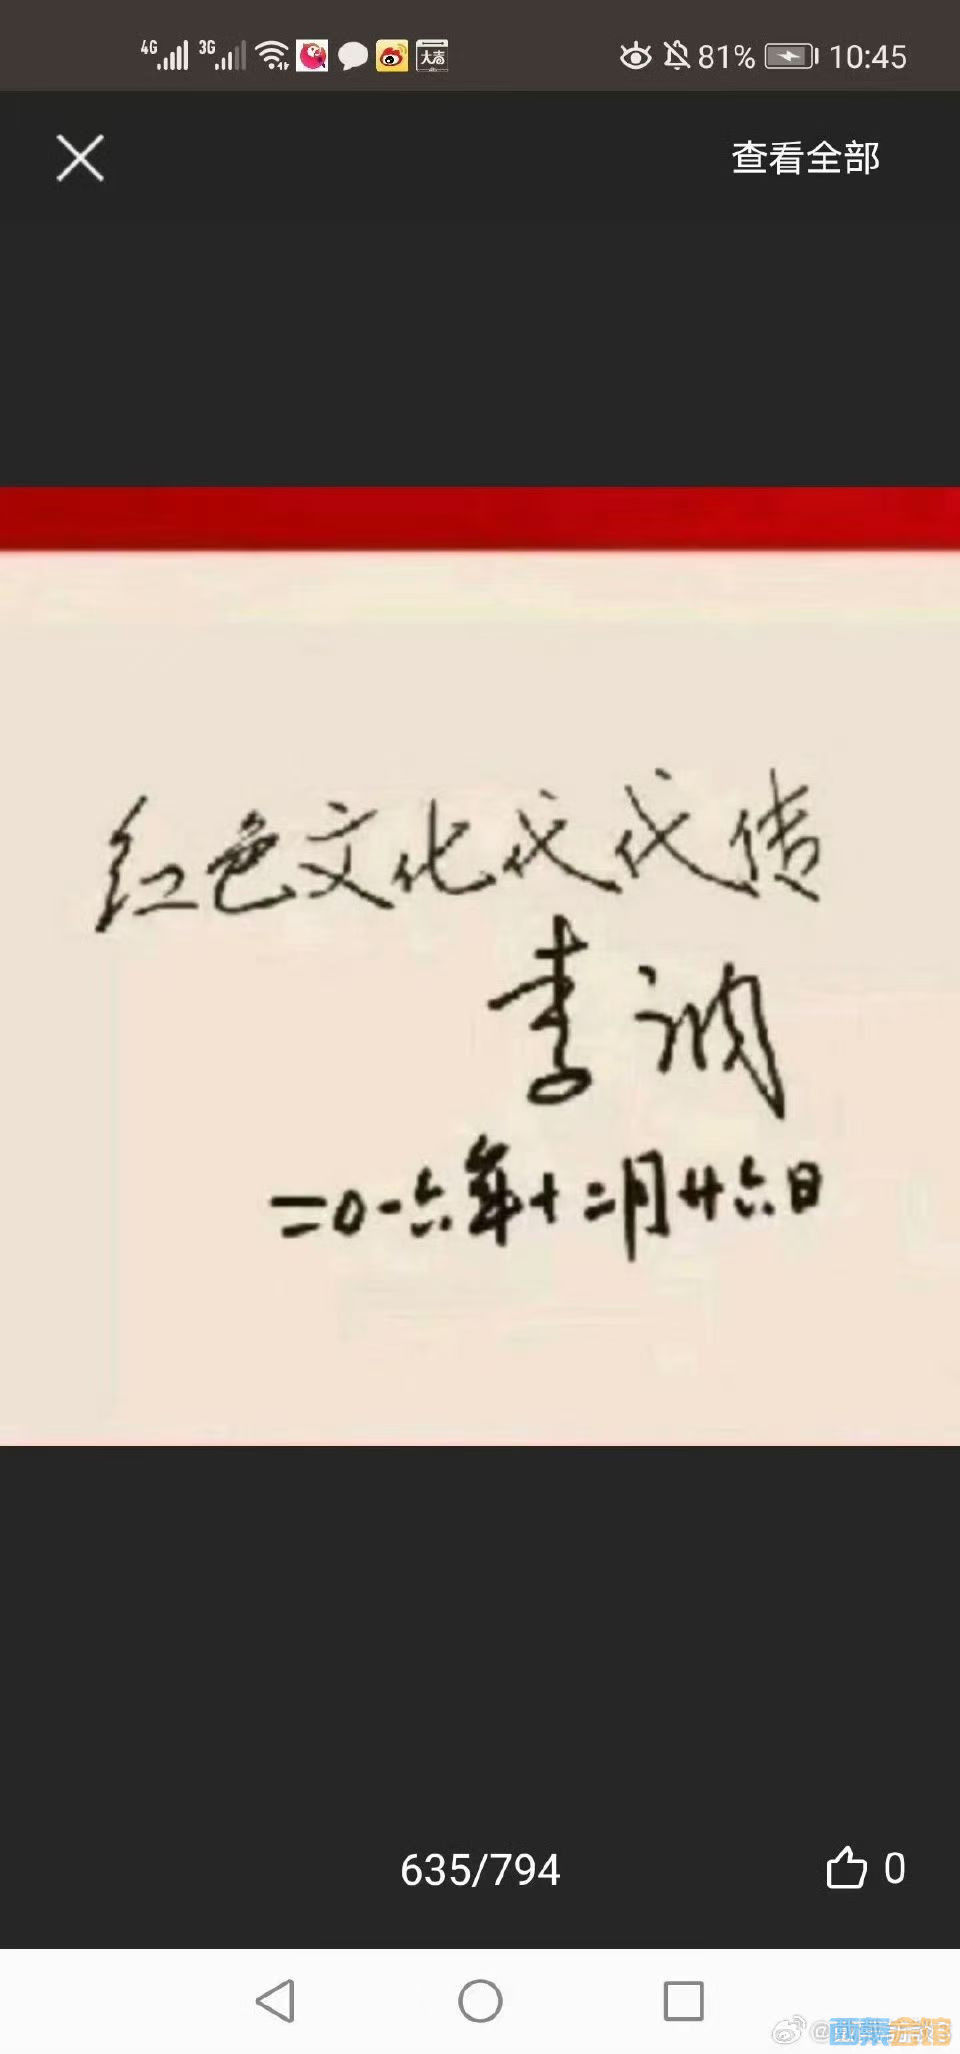 4G 3G 81% 10:45
查看全部
红色文化代代传
李讷
二0一六年十二月廿六日
635/794 0
西菜会馆